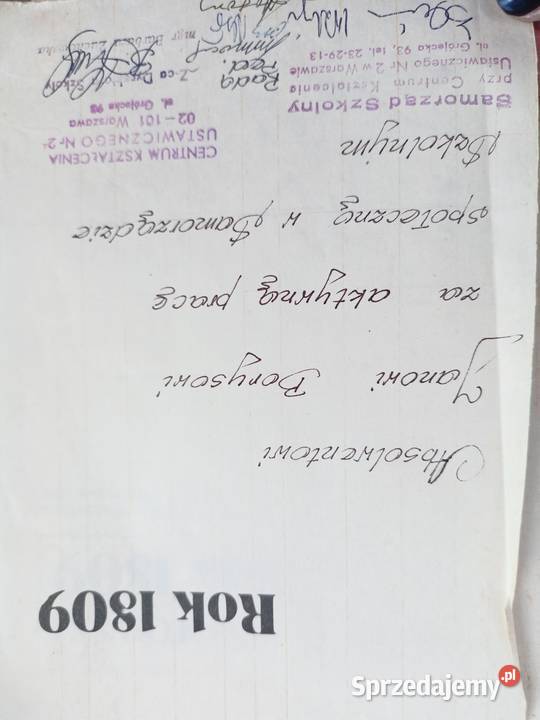 Rok 1809
Absolwentowi
Janowi Borysowi
za aktywną pracę
społeczną w Samorządzie
Szkolnym
CENTRUM KSZTAŁCENIA
USTAWICZNEGO Nr 2
02-101 Warszawa
ul. Grójecka 93
Samorząd Szkolny
przy Centrum Kształcenia
Ustawicznego Nr 2 w Warszawie
ul. Grójecka 93, tel. 23-29-13
Rada
Ped.
Z-ca
mgr
Sprzedajemy.pl